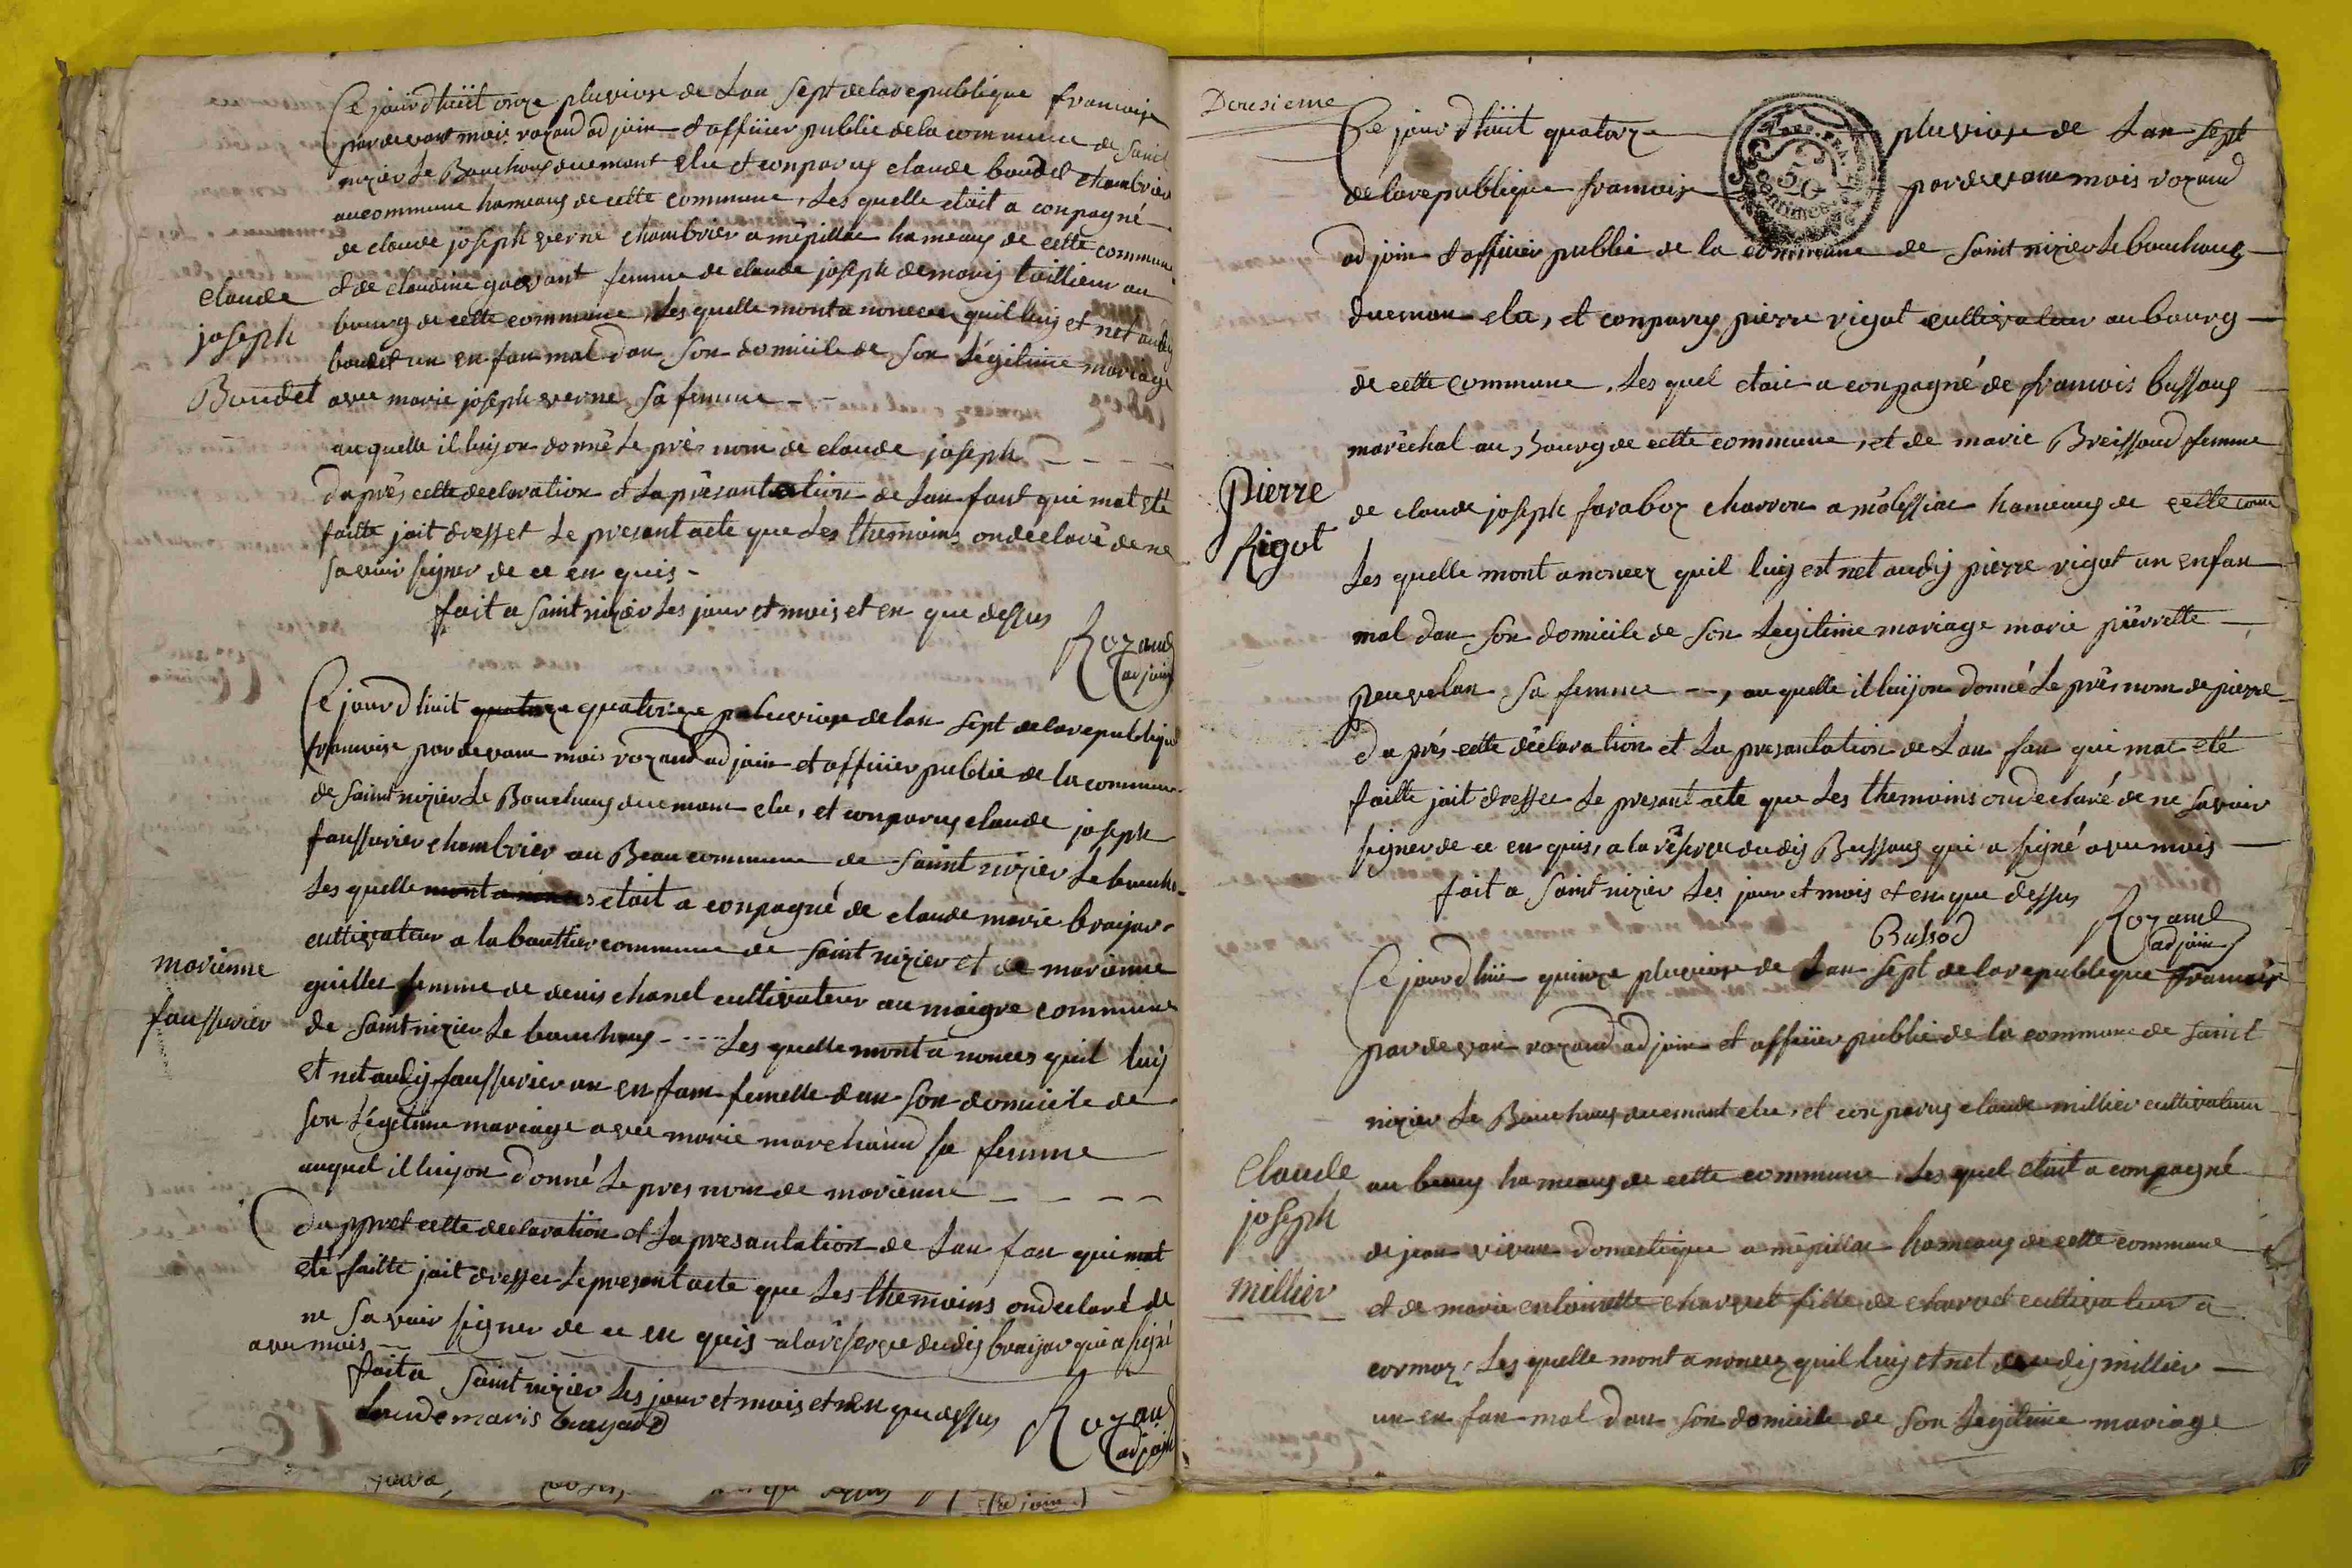 Ce jourdhuit onze pluviose de Lan Sept delarepublique francaise
pardevant mois rozand adjoin et officier public dela commune de Saint
nizier Le Bouchoug duemant elu et conparus claude boudet chambrier
aucommune hameaug de cette commune, Les quelle etait a conpagné
de claude joseph verne chambrier a mépillat hameaug de cette commune
et de claudine gavant femme de claude joseph demoris taillieur au
bourg de cette commune Les quelle mont a noncez quil luij et net audij
boudet un en fan mal dan Son domicile de Son Légitime mariage
avec marie joseph verne Sa femme - -
auquelle il luij on donné Le prés nom de claude joseph - - - -
claude
joseph
Boudet
daprés cette declaration et La présantation de Lan fant qui mat eté
faitte jait dresset Le present acte que Les themoins on declaré de ne
Savoir Signer de ce en quis -
fait a Saint nizier Les jour et mois et en que dessus
Rozand
adjoin
Ce jourdhuit quatorze quatorze pluviose delan Sept delarepublique
francoise pardevant mois rozand adjoin et officier public de la commune
de Saint nizier Le Bouchoug duemant elu, et conparus claude joseph
faussurier chambrier au Beau commune de Saint nizier Le bouchs
Les quelle mont a nonces etait a conpagné de claude marie brayar
cultivateur a la bouttier commune de Saint nizier et de marienne
guillet femme de denis chanel cultivateur au maigre commune
de Saint nizier Le bouchoug - - - - Les quelle mont a nonces quil luij
et net audij faussurier un en fam femelle dan Son domicile de
Son Légitime mariage avec marie marchand Sa femme
auquel il luijon donné Le pres nom de marienne - - - -
marienne
faussurier
dappret cette declaration et La presantation de Lan fan qui mat
eté faitte jait dresser Le present acte que Les themoins ondeclaré de
ne Savoir Signer de ce en quis - a la réserve dudij brayar qui a Signé
avec mois
fait a Saint nizier Les jour et mois et en que dessus
Rozand
adjoin
(adjoin)
Deuxieme
Ce jour dhuit quatorze pluviose de Lan Sept
50
centimes
delarepublique francoise pardevant mois rozand
adjoin et officier public de la commune de Saint nizier Le bouchoug
duemant elu, et conparus pierre rigot cultivateur au bourg
de cette commune, Les quel etait a conpagné de francois bussoug
maréchal au Bourg de cette commune, et de marie Breissoud femme
de claude joseph faraboz charron a malessiat hameaug de cette com
Les quelle mont anoncez quil luij est net audij pierre rigot un enfan
mal dan Son domicile de Son Legitime mariage marie pierrette
peuvelan Sa femme - -, auquelle il luijon donné Le prés nom de pierre
Pierre
Rigot
daprés cette déclaration et La presantation de Lan fan qui mat eté
faitte jait dresser Le presant acte que Les themoins ondeclaré de ne Savoir
Signer de ce en quis, a la réserve dudij Bussoug qui a Signé avec mois
fait a Saint nizier Les jour et mois et en que dessus
Bussod
Rozand
adjoin
Ce jourdhui quinze pluviose de Lan Sept delarepublique francois
pardevan rozand adjoin et officier public de la commune de Saint
nizier Le Bouchoug duemant elu, et conparus claude millier cultivateur
au beaug hameaug de cette commune, Les quel etait a conpagné
de jean vivan domestique a mépillat hameaug de cette commune
et de marie entoinette charvet fille de charvet cultivateur a
cormoz, Les quelle mont a noncez quil luij et net audij millier
un en fan mal dan Son domicile de Son Legitime mariage
claude
joseph
millier